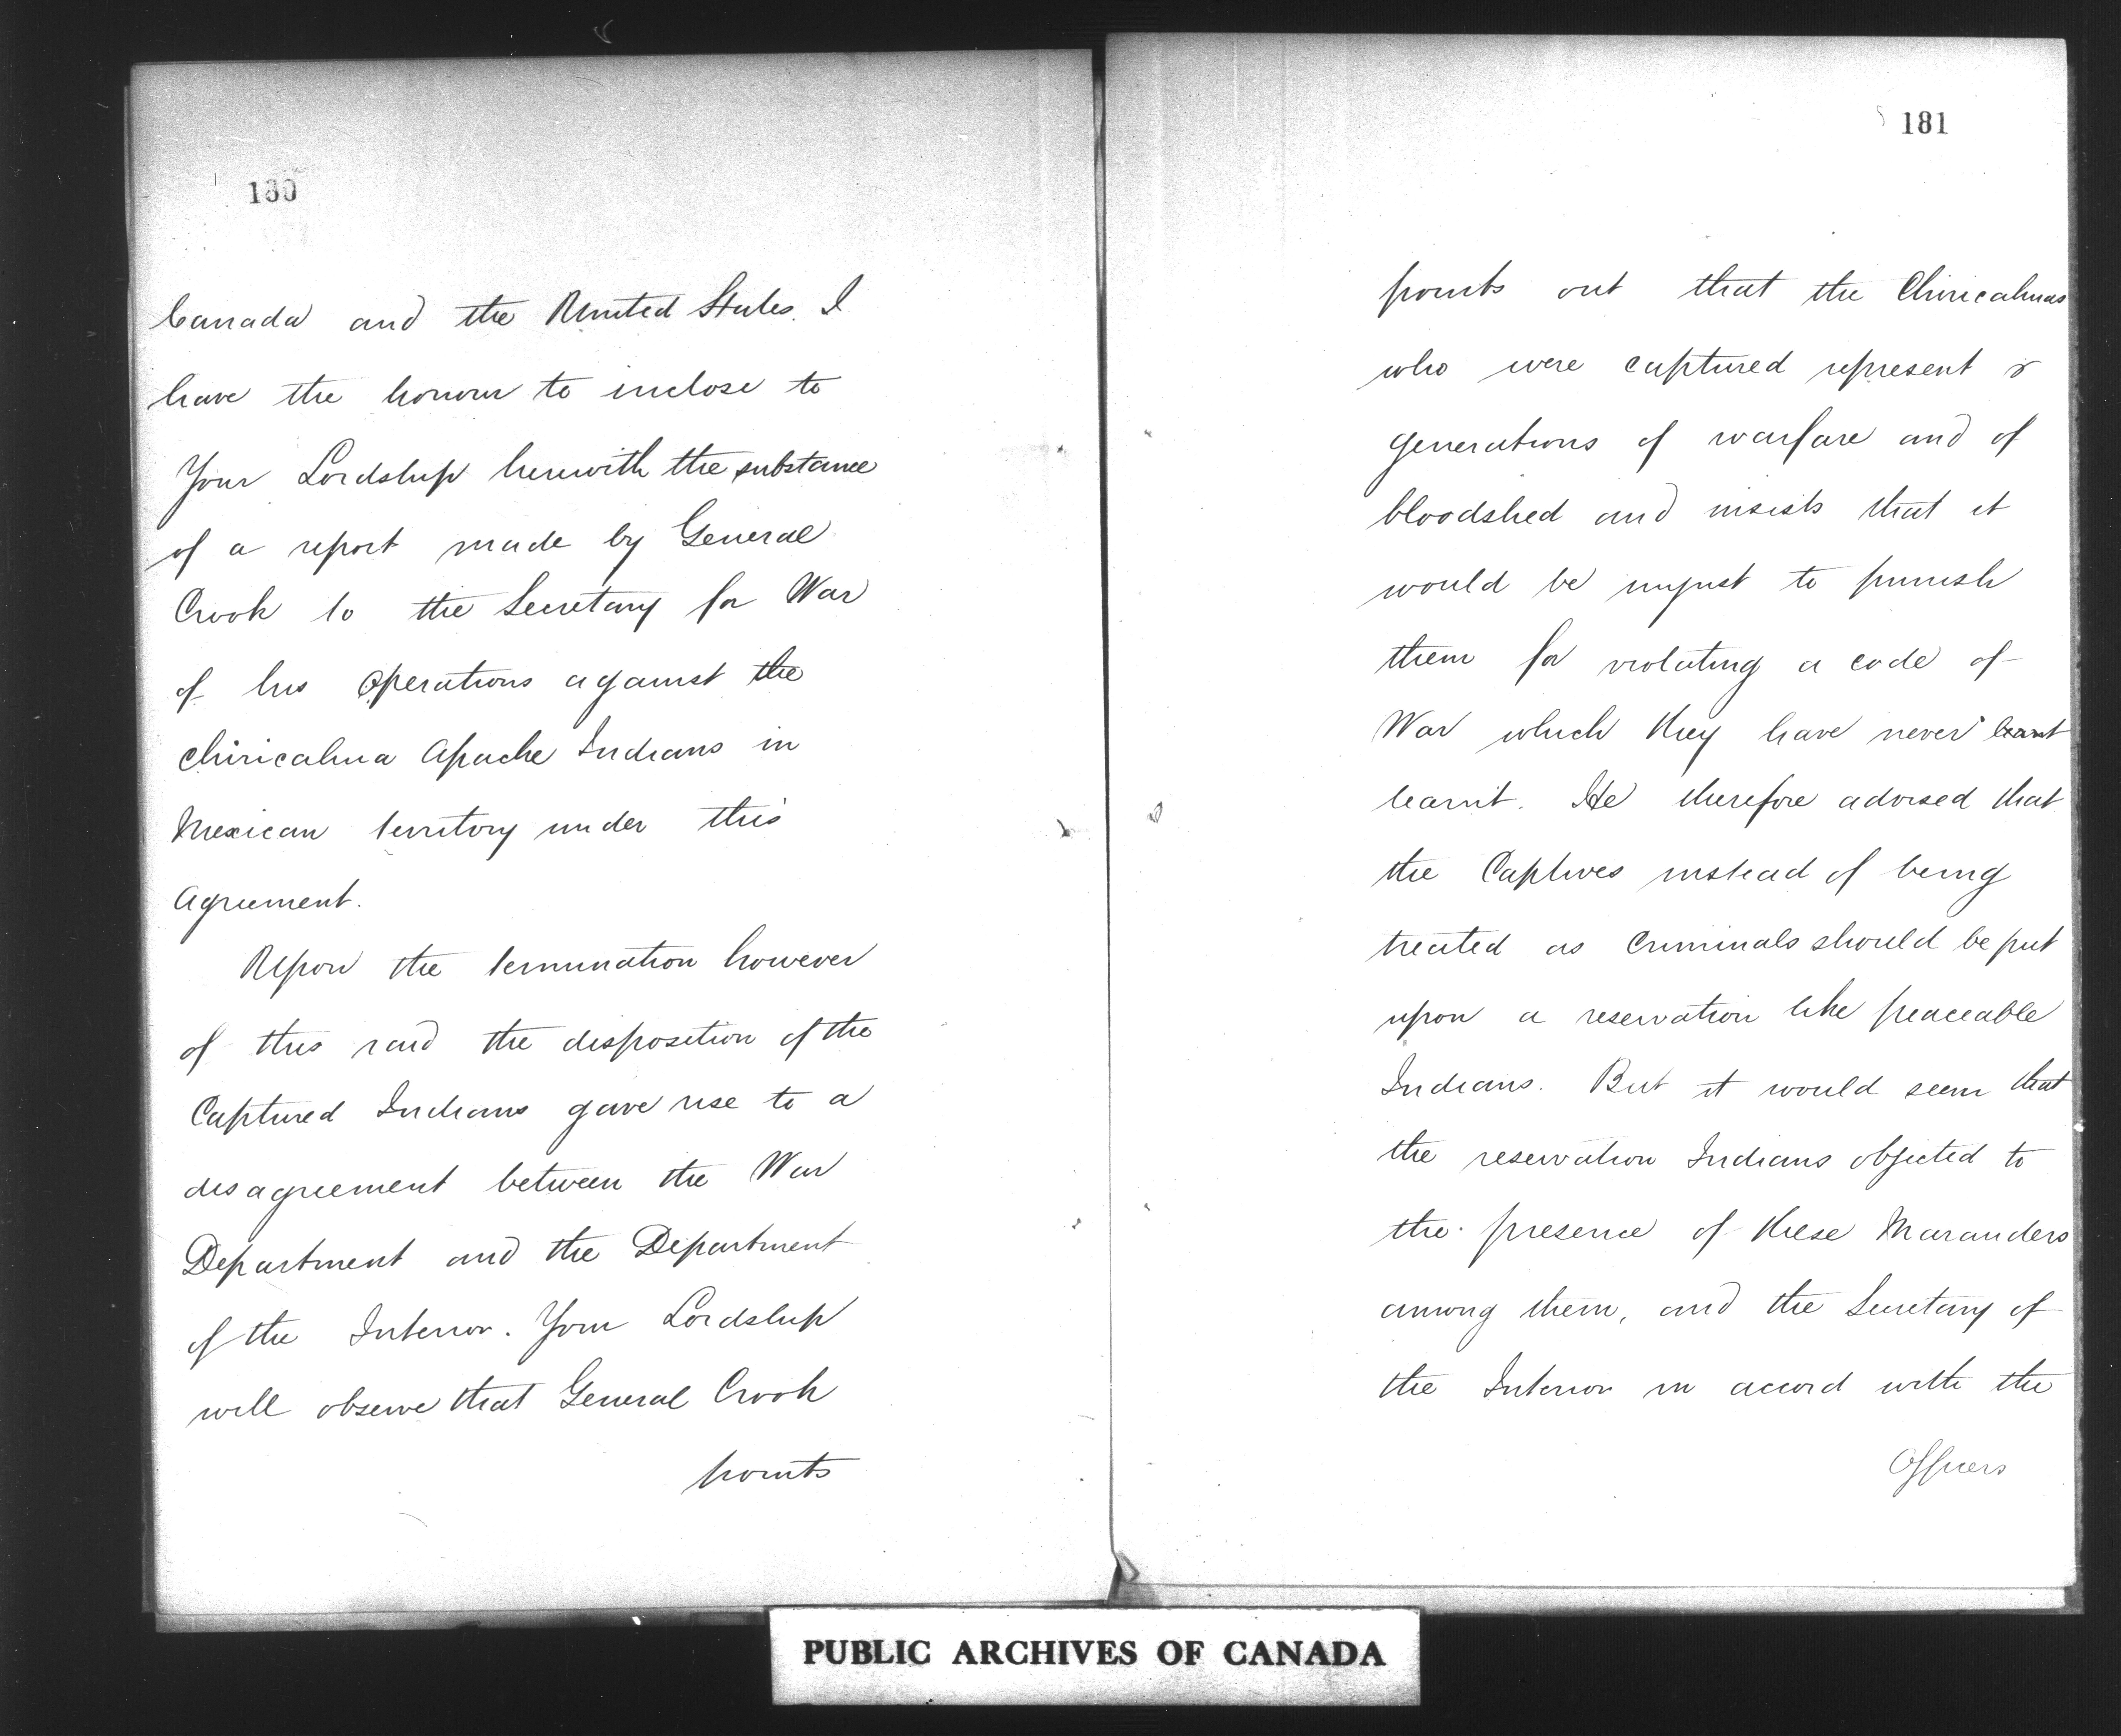 180
Canada and the United States. I
have the honour to inclose to
Your Lordship herewith the substance
of a report made by General
Crook to the Secretary for War
of his operations against the
Chiricahua Apache Indians in
Mexican territory under this
agreement.
Upon the termination however
of this raid the disposition of the
Captured Indians gave rise to a
disagreement between the War
Department and the Department
of the Interior. Your Lordship
will observe that General Crook
points
181
points out that the Chiricahuas
who were captured represent
generations of warfare and of
bloodshed and insists that it
would be unjust to punish
them for violating a code of
War which they have never learnt
learnt. He therefore advised that
the Captives instead of being
treated as Criminals should be put
upon a reservation like peaceable
Indians. But it would seem that
the reservation Indians objected to
the presence of these Marauders
among them, and the Secretary of
the Interior in accord with the
Officers
PUBLIC ARCHIVES OF CANADA